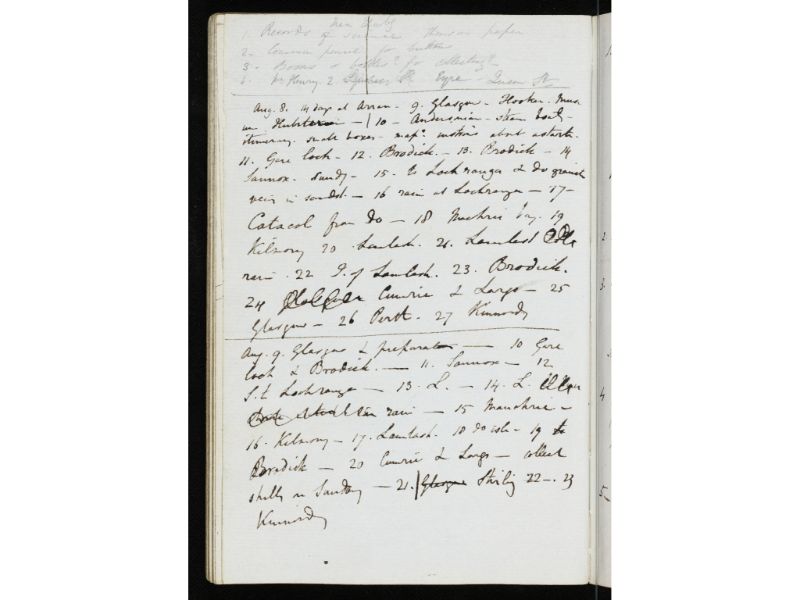 1. Records of Science Thomson paper
2. Common pencil for button
3. Boxes or bottles for collecting
4. Mr Henry 2 Eyre Queen St
Aug. 8. 14 days at Arran. 9. Glasgow - Hooker.
- 10 - Andersonian - steam boats -
itinerary. small boxes - map. about
11. Gare loch - 12. Brodick. - 13. Brodick - 14
Sannox. Sunday - 15. to Loch ranza & do granite
vein in sandst. - 16 rain at Lochranza - 17 -
Catacol from do - 18 Machrie bay. 19
Kilmory 20 Lamlash. 21. Lamlash
rain. 22 I. of Lamlash. 23. Brodick.
24 Cumrie & Largs - 25
Glasgow - 26 Perth. 27 Kinnordy
Aug. 9. Glasgow & preparation - 10 Gare
loch & Brodick. - 11. Sannox - 12
S. & Lochranza - 13. L. - 14. L.
rain - 15 Mauchrie -
16. Kilmory - 17. Lamlash. 18 do isle - 19 to
Brodick - 20 Cumrie & Largs - collect
shells on Sunday - 21. Glasgow Stirling 22 -. 23
Kinnordy